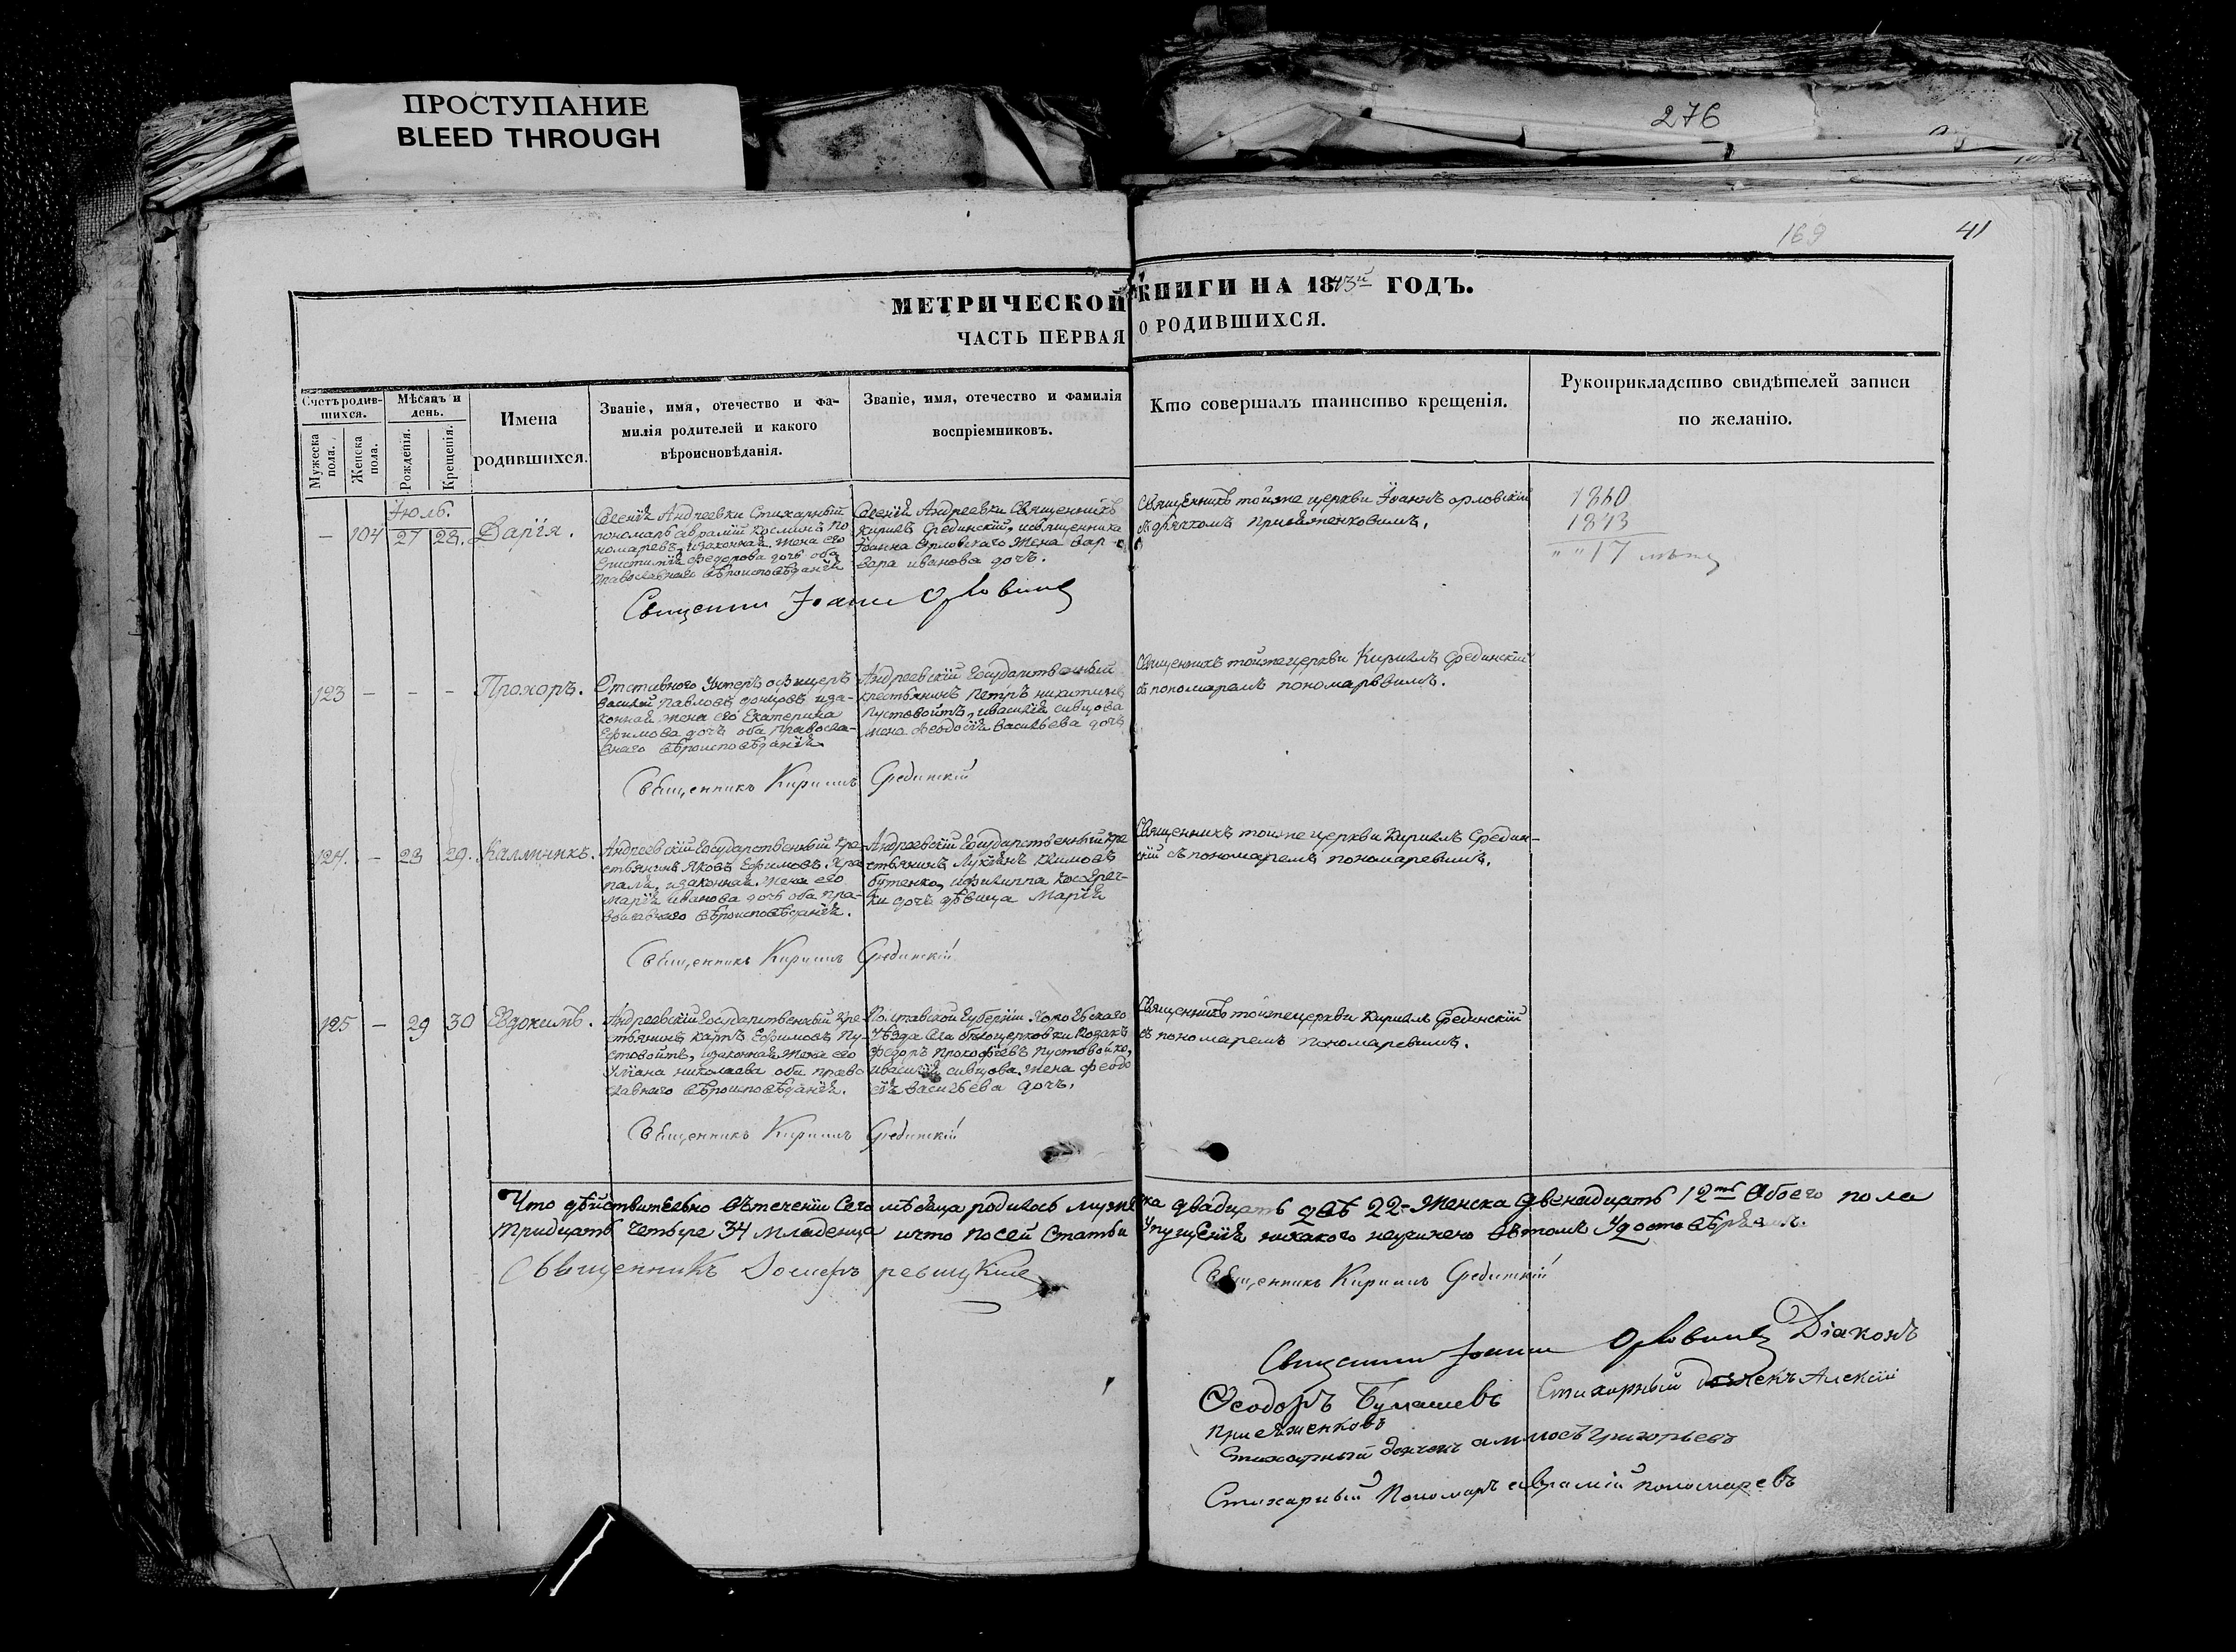 ПРОСТУПАНИЕ
BLEED THROUGH
276
169
41
МЕТРИЧЕСКОЙ КНИГИ НА 1843й ГОДЪ.
ЧАСТЬ ПЕРВАЯ О РОДИВШИХСЯ.
Счетъ родив-
шихся.
Мужеска пола.
Женска пола.
Мѣсяцъ и
день.
Рожденія.
Крещенія.
Имена
родившихся.
Званіе, имя, отечество и фа-
милія родителей и какого
вѣроисповѣданія.
Званіе, имя, отечество и фамилія
воспріемниковъ.
Кто совершалъ таинство крещенія.
Рукоприкладство свидѣтелей записи
по желанію.
Іюль.
— 104 27 28. Дарія.
Андреевки Стихарный
пономарь Аврамій Косминъ По-
номаревъ, и законная жена его
Епистимія Федорова дочь оба
Православнаго вѣроисповѣданія
Андреевки Священникъ
Кирилъ Срединскій, и священника
Іоанна Орловскаго жена Вар-
вара иванова дочь.
Священникъ тойже церкви Іоаннъ орловскій
съ дьячкомъ Приваженковимъ.
1860
1843
" " 17 лѣтъ
Священникъ Іоаннъ Орловскій
123 — — — Прохоръ.
Отставного Унтеръ офицеръ
василій Павловъ и за-
конная жена его Екатерина
Ефимова дочь оба Правосла-
внаго вѣроисповѣданія.
Андреевскій Государственный
крестьянинъ Петръ никитинъ
Пустовойтъ, и василія сивцова
жена Феодосія Васильева дочь
Священникъ тойже церкви Кирилъ Срединскій
съ пономаремъ пономарьвимъ.
Священникъ Кирилъ Срединскій
124. — 28 29. Каллиникъ.
Андреевскій Государственный кре-
стьянинъ Яковъ Ефимовъ
и законная жена его
марія Иванова дочь оба пра-
вославнаго вѣроисповѣданія.
Андреевскій Государственный кре-
стьянинъ Лукіянъ Климовъ
бутенко, и филиппа
ки дочь дѣвица Марія
Священникъ тойже церкви Кирилъ Средин-
скій съ пономаремъ пономаревимъ.
Священникъ Кирилъ Срединскій
125 — 29 30 Евдокимъ.
Андреевскій Государственный кре-
стьянинъ Карпъ Ефимовъ Пу-
стовойтъ, и законная жена его
Уліана николаева оба право
славнаго вѣроисповѣданія.
Полтавской Губерніи
Уѣзда Села бѣлоцерковки Козакъ
Федоръ Прокофіевъ Пустовойко,
и василія сивцова жена феодо
сія васильева дочь.
Священникъ тойже церкви Кирилъ Срединскій
съ пономаремъ Пономаревимъ.
Священникъ Кирилъ Срединскій
Что дѣйствительно въ теченіи Сего мѣсяца родилось мужеска двадцать двѣ 22 — Женска двенадцать 12ть Обоего пола
тридцать Четыре 34 младенца и что по сей Статьи Упущенія никакого неучинено въ томъ Удостовѣряемъ.
Священникъ
Священникъ Кирилъ Срединскій
Священникъ Іоаннъ Орловскій Діаконъ
Феодоръ Стихарный Алексій
Стихарный Григорьевъ
Стихарный Пономарь Аврамій пономаревъ